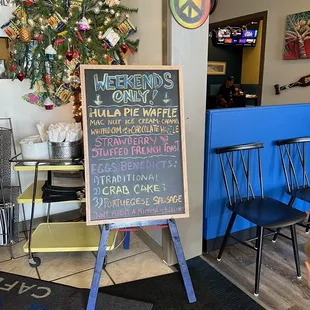 WEEKENDS
ONLY!
HULA PIE WAFFLE
MAC NUT ICE CREAM, CARAMEL
WHIPPED COM + CHOCOLATE
STRAWBERRY
STUFFED FRENCH TOAST
EGGS BENEDICTS:
1) TRADITIONAL
2) CRAB CAKE
3) PORTUGESE SAUSAGE
CAF